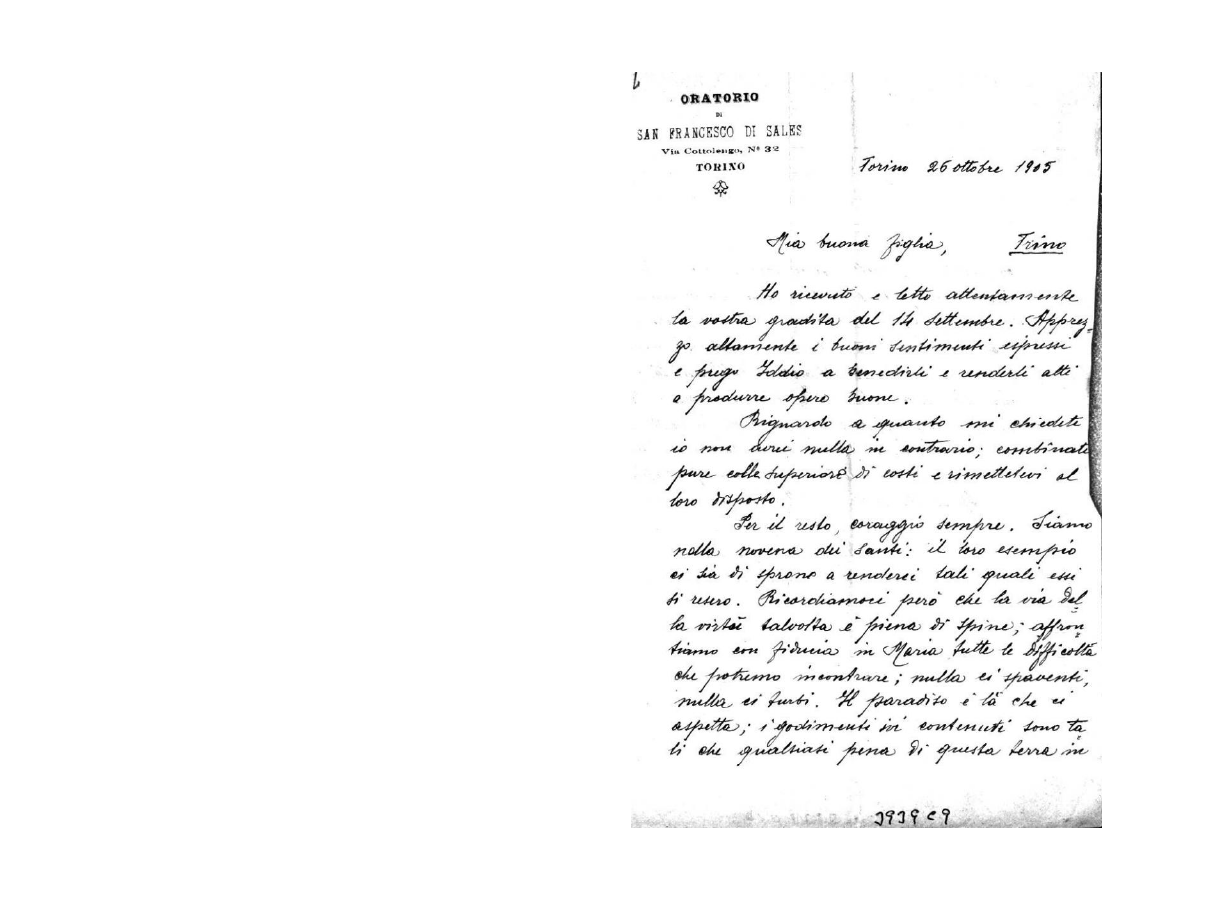 ORATORIO
DI
SAN FRANCESCO DI SALES
Via Cottolengo, N° 32
TORINO
Torino 26 ottobre 1905
Mia buona figlia, Trino
Ho ricevuto e letto attentamente
la vostra gradita del 14 settembre. Apprez=
zo altamente i buoni sentimenti espressi
e prego Iddio a benedirli e renderli atti
a produrre opere buone.
Riguardo a quanto mi chiedete
io non avrei nulla in contrario; combinate
pure colle superiore di costì e rimettetevi al
loro disposto.
Per il resto, coraggio sempre. Siamo
nella novena dei Santi: il loro esempio
ci sia di sprone a renderci tali quali essi
si resero. Ricordiamoci però che la via del=
la virtù talvolta è piena di spine; affron=
tiamo con fiducia in Maria tutte le difficoltà
che potremo incontrare; nulla ci spaventi,
nulla ci turbi. Il paradiso è là che ci
aspetta; i godimenti ivi contenuti sono ta=
li che qualsiasi pena di questa terra in
3939 C 9